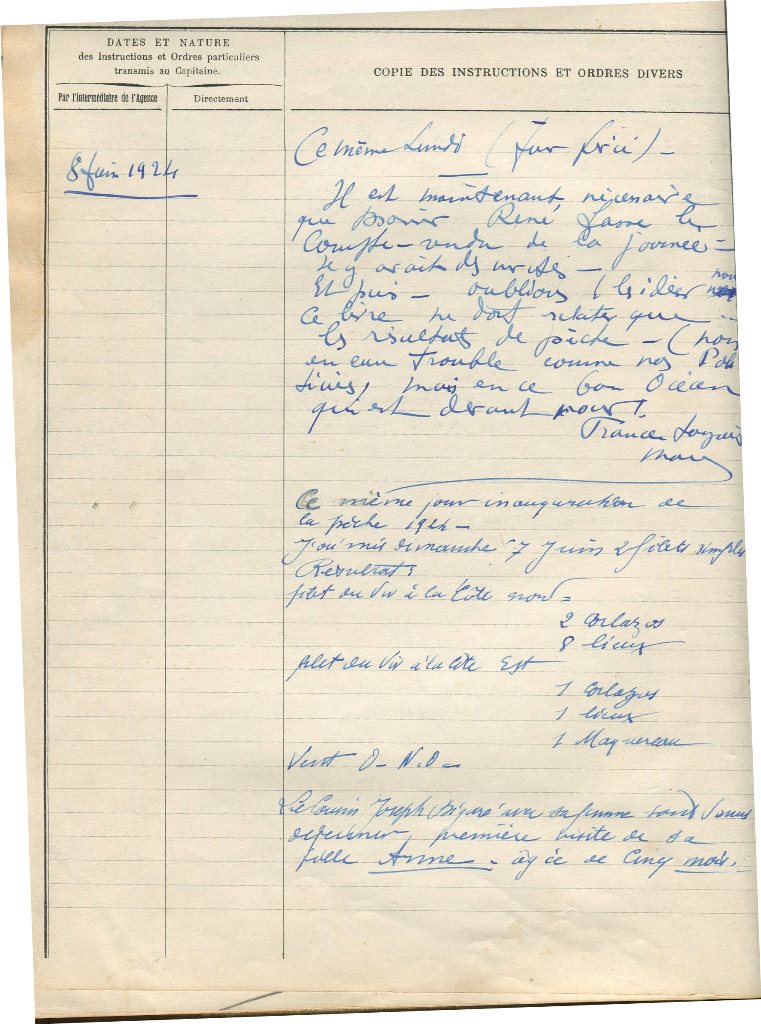 DATES ET NATURE
des Instructions et Ordres particuliers
transmis au Capitaine.
COPIE DES INSTRUCTIONS ET ORDRES DIVERS
Par l'intermédiaire de l'Agence
Directement
8 Juin 1924
Ce même Lundi
Il est maintenant nécessaire
que René fasse le
Compte-rendu de la journée –
Et puis – oublions
Ce livre ne doit relater que
les résultats de pêche – (non
en eau trouble comme nos Poli
ticiens, mais en ce bon Océan
qui est devant nous!
" "
Ce même jour inauguration de
la pêche 1924 –
J'ai mis dimanche 7 Juin 2 filets simples
Résultat:
filet du Viv à la Côte nord =
2 Corlazos
8 lieux
filet du Viv à la côte Est
1 Corlazos
1 lieux
1 Maquereau
Vent O. N. O –
Le Cousin Joseph avec sa femme sont venus
déjeuner, première visite de sa
fille Anne – âgée de Cinq mois.